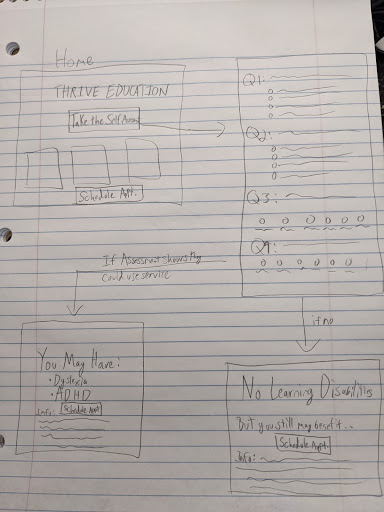 Home
THRIVE EDUCATION
Take the Self
Schedule Appt.
Q1:
Q2:
Q3:
Q4:
If Assessment shows they
could use service
if no
You May Have:
• Dyslexia
• ADHD
Schedule Appt
Info:
No Learning Disabilities
But you still may benefit...
Schedule Appt.
Info: